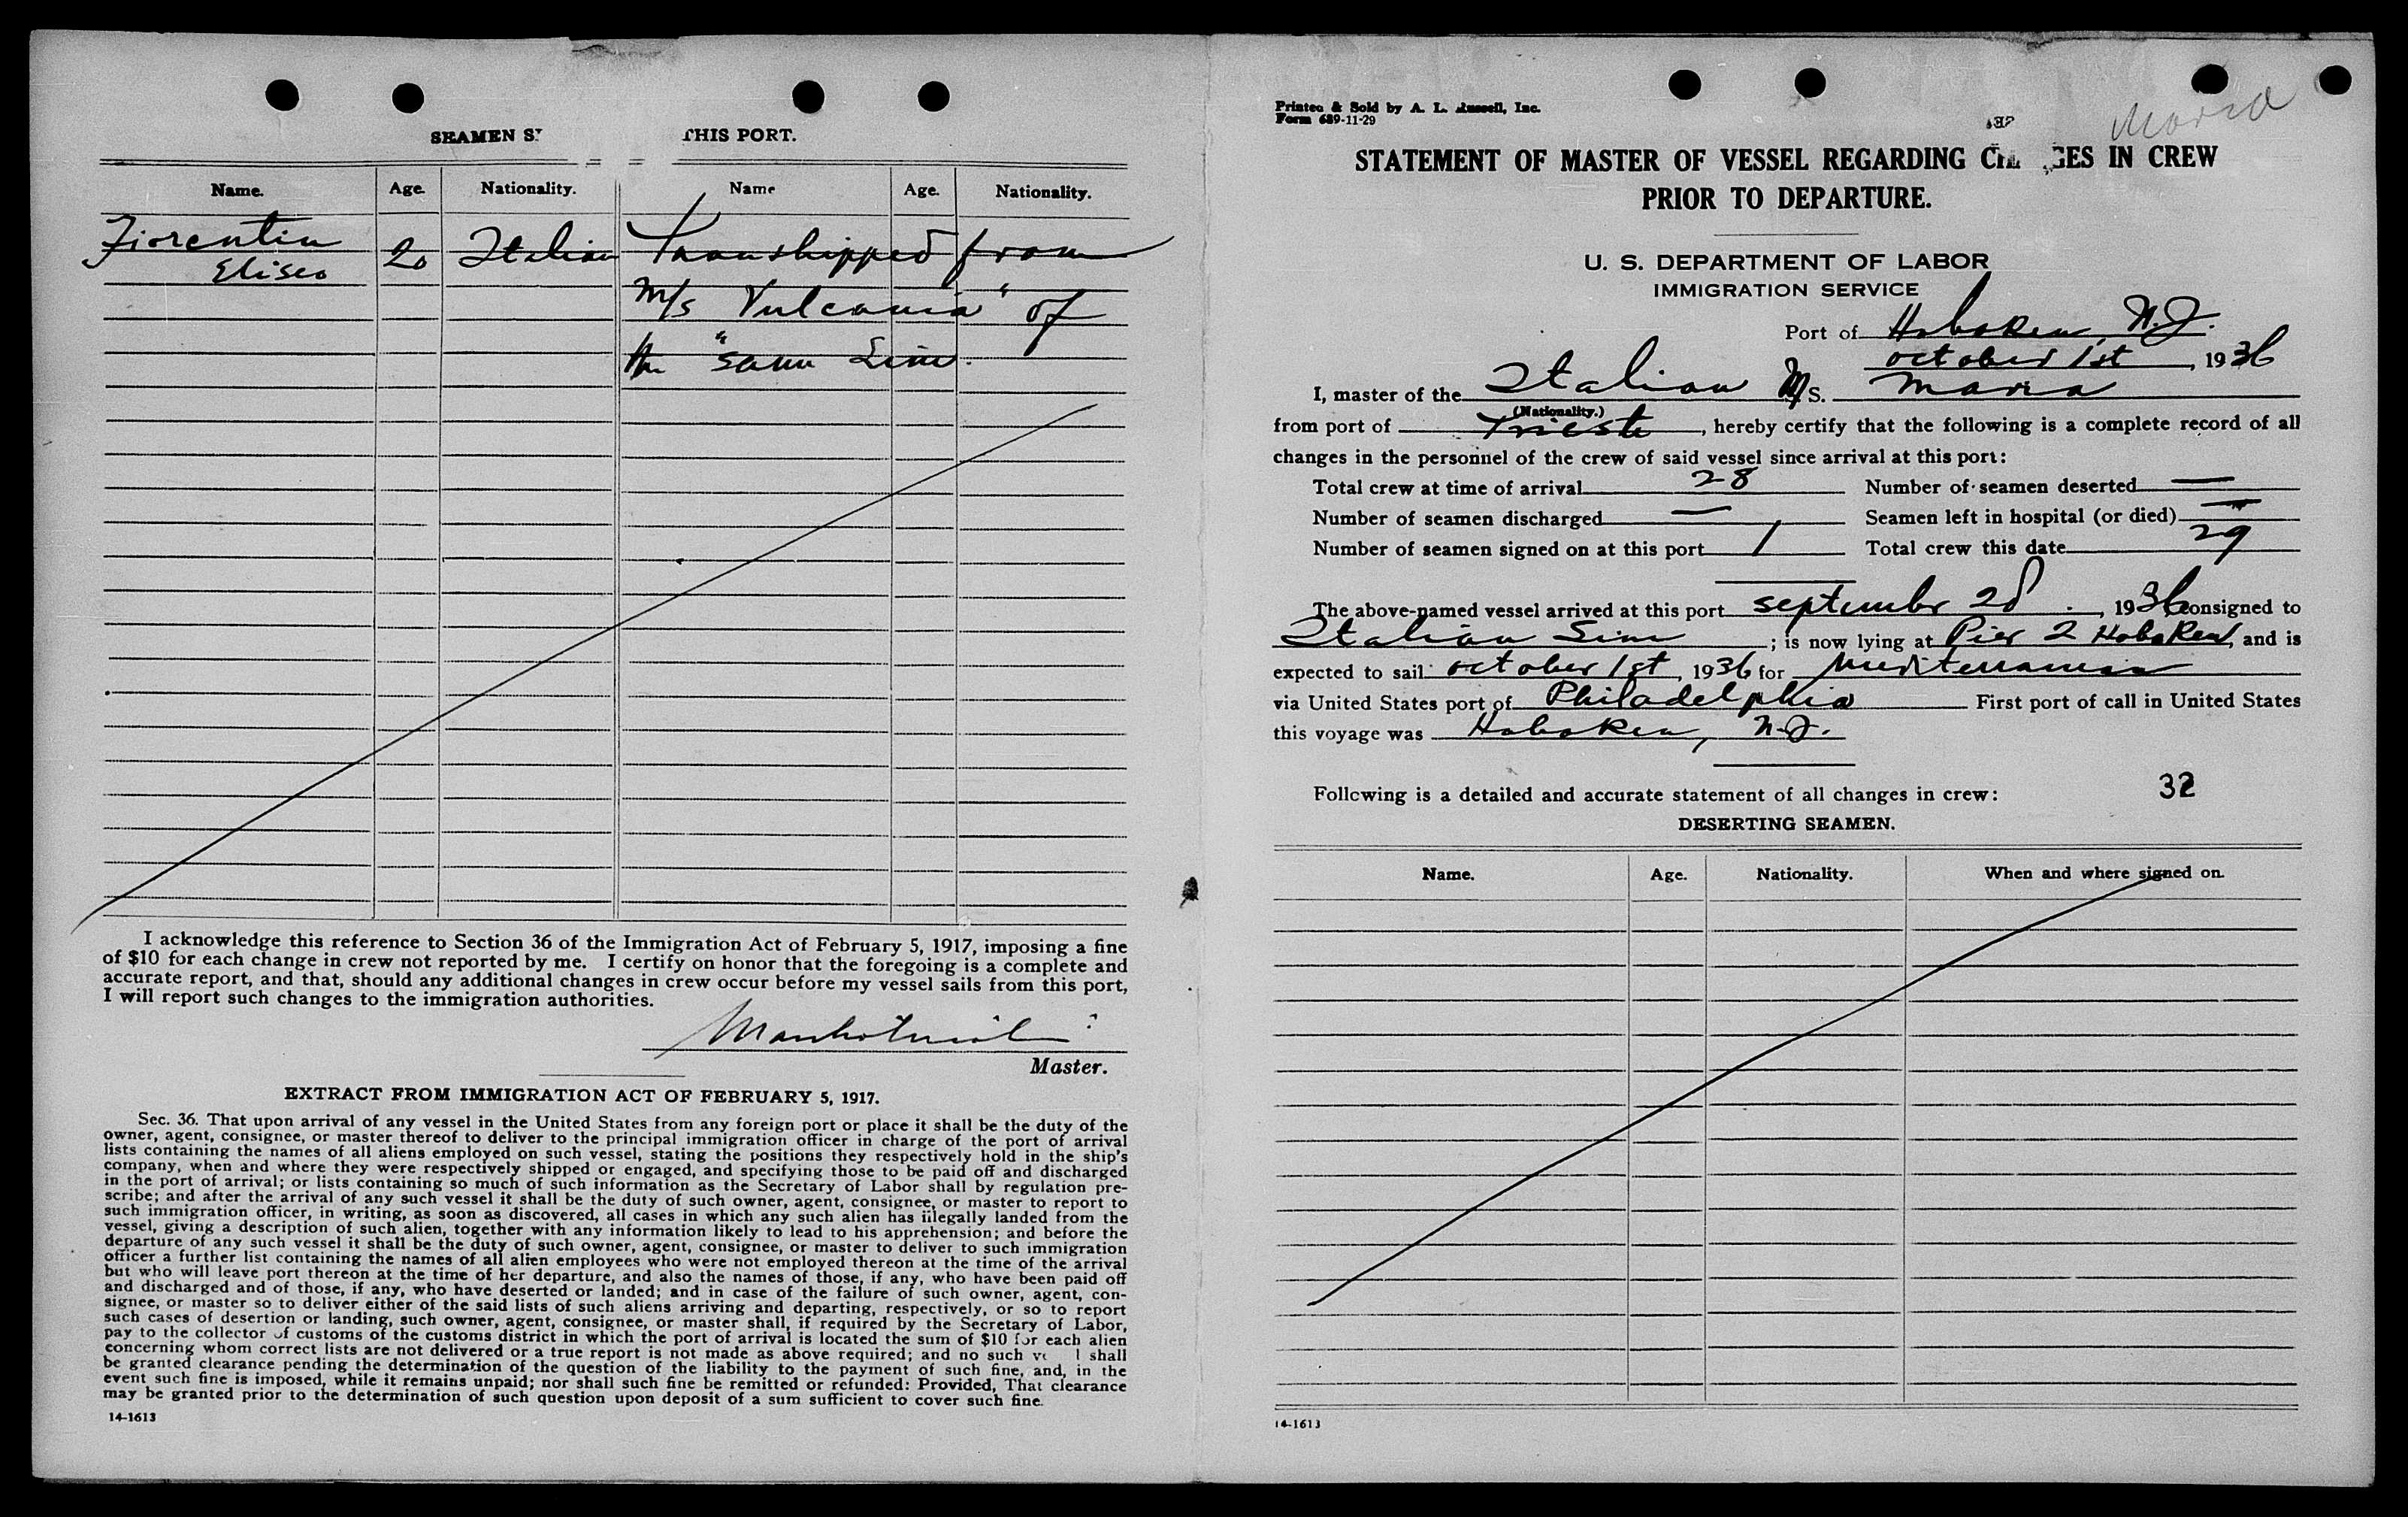 SEAMEN S THIS PORT.
Name. Age. Nationality. Name Age. Nationality.
Fiorentin 20 Italian Transhipped from
Eliseo
M/S Vulcania" of
the "same Line.
I acknowledge this reference to Section 36 of the Immigration Act of February 5, 1917, imposing a fine
of $10 for each change in crew not reported by me. I certify on honor that the foregoing is a complete and
accurate report, and that, should any additional changes in crew occur before my vessel sails from this port,
I will report such changes to the immigration authorities.
Master.
EXTRACT FROM IMMIGRATION ACT OF FEBRUARY 5, 1917.
Sec. 36. That upon arrival of any vessel in the United States from any foreign port or place it shall be the duty of the
owner, agent, consignee, or master thereof to deliver to the principal immigration officer in charge of the port of arrival
lists containing the names of all aliens employed on such vessel, stating the positions they respectively hold in the ship's
company, when and where they were respectively shipped or engaged, and specifying those to be paid off and discharged
in the port of arrival; or lists containing so much of such information as the Secretary of Labor shall by regulation pre-
scribe; and after the arrival of any such vessel it shall be the duty of such owner, agent, consignee, or master to report to
such immigration officer, in writing, as soon as discovered, all cases in which any such alien has illegally landed from the
vessel, giving a description of such alien, together with any information likely to lead to his apprehension; and before the
departure of any such vessel it shall be the duty of such owner, agent, consignee, or master to deliver to such immigration
officer a further list containing the names of all alien employees who were not employed thereon at the time of the arrival
but who will leave port thereon at the time of her departure, and also the names of those, if any, who have been paid off
and discharged and of those, if any, who have deserted or landed; and in case of the failure of such owner, agent, con-
signee, or master so to deliver either of the said lists of such aliens arriving and departing, respectively, or so to report
such cases of desertion or landing, such owner, agent, consignee, or master shall, if required by the Secretary of Labor,
pay to the collector of customs of the customs district in which the port of arrival is located the sum of $10 for each alien
concerning whom correct lists are not delivered or a true report is not made as above required; and no such shall
be granted clearance pending the determination of the question of the liability to the payment of such fine, and, in the
event such fine is imposed, while it remains unpaid; nor shall such fine be remitted or refunded: Provided, That clearance
may be granted prior to the determination of such question upon deposit of a sum sufficient to cover such fine.
14-1613
Printed & Sold by A. L. Russell, Inc.
Form 689-11-29
Maria
STATEMENT OF MASTER OF VESSEL REGARDING CHANGES IN CREW
PRIOR TO DEPARTURE.
U. S. DEPARTMENT OF LABOR
IMMIGRATION SERVICE
Port of Hoboken, N.J.
October 1st, 1936
I, master of the Italian M/S. Maria
(Nationality.)
from port of Trieste, hereby certify that the following is a complete record of all
changes in the personnel of the crew of said vessel since arrival at this port:
Total crew at time of arrival 28 Number of seamen deserted —
Number of seamen discharged — Seamen left in hospital (or died) —
Number of seamen signed on at this port 1 Total crew this date 29
The above-named vessel arrived at this port September 28, 1936 consigned to
Italian Line; is now lying at Pier 2 Hoboken, and is
expected to sail October 1st, 1936 for Mediterranean
via United States port of Philadelphia First port of call in United States
this voyage was Hoboken, N.J.
32
Following is a detailed and accurate statement of all changes in crew:
DESERTING SEAMEN.
Name. Age. Nationality. When and where signed on.
14-1613